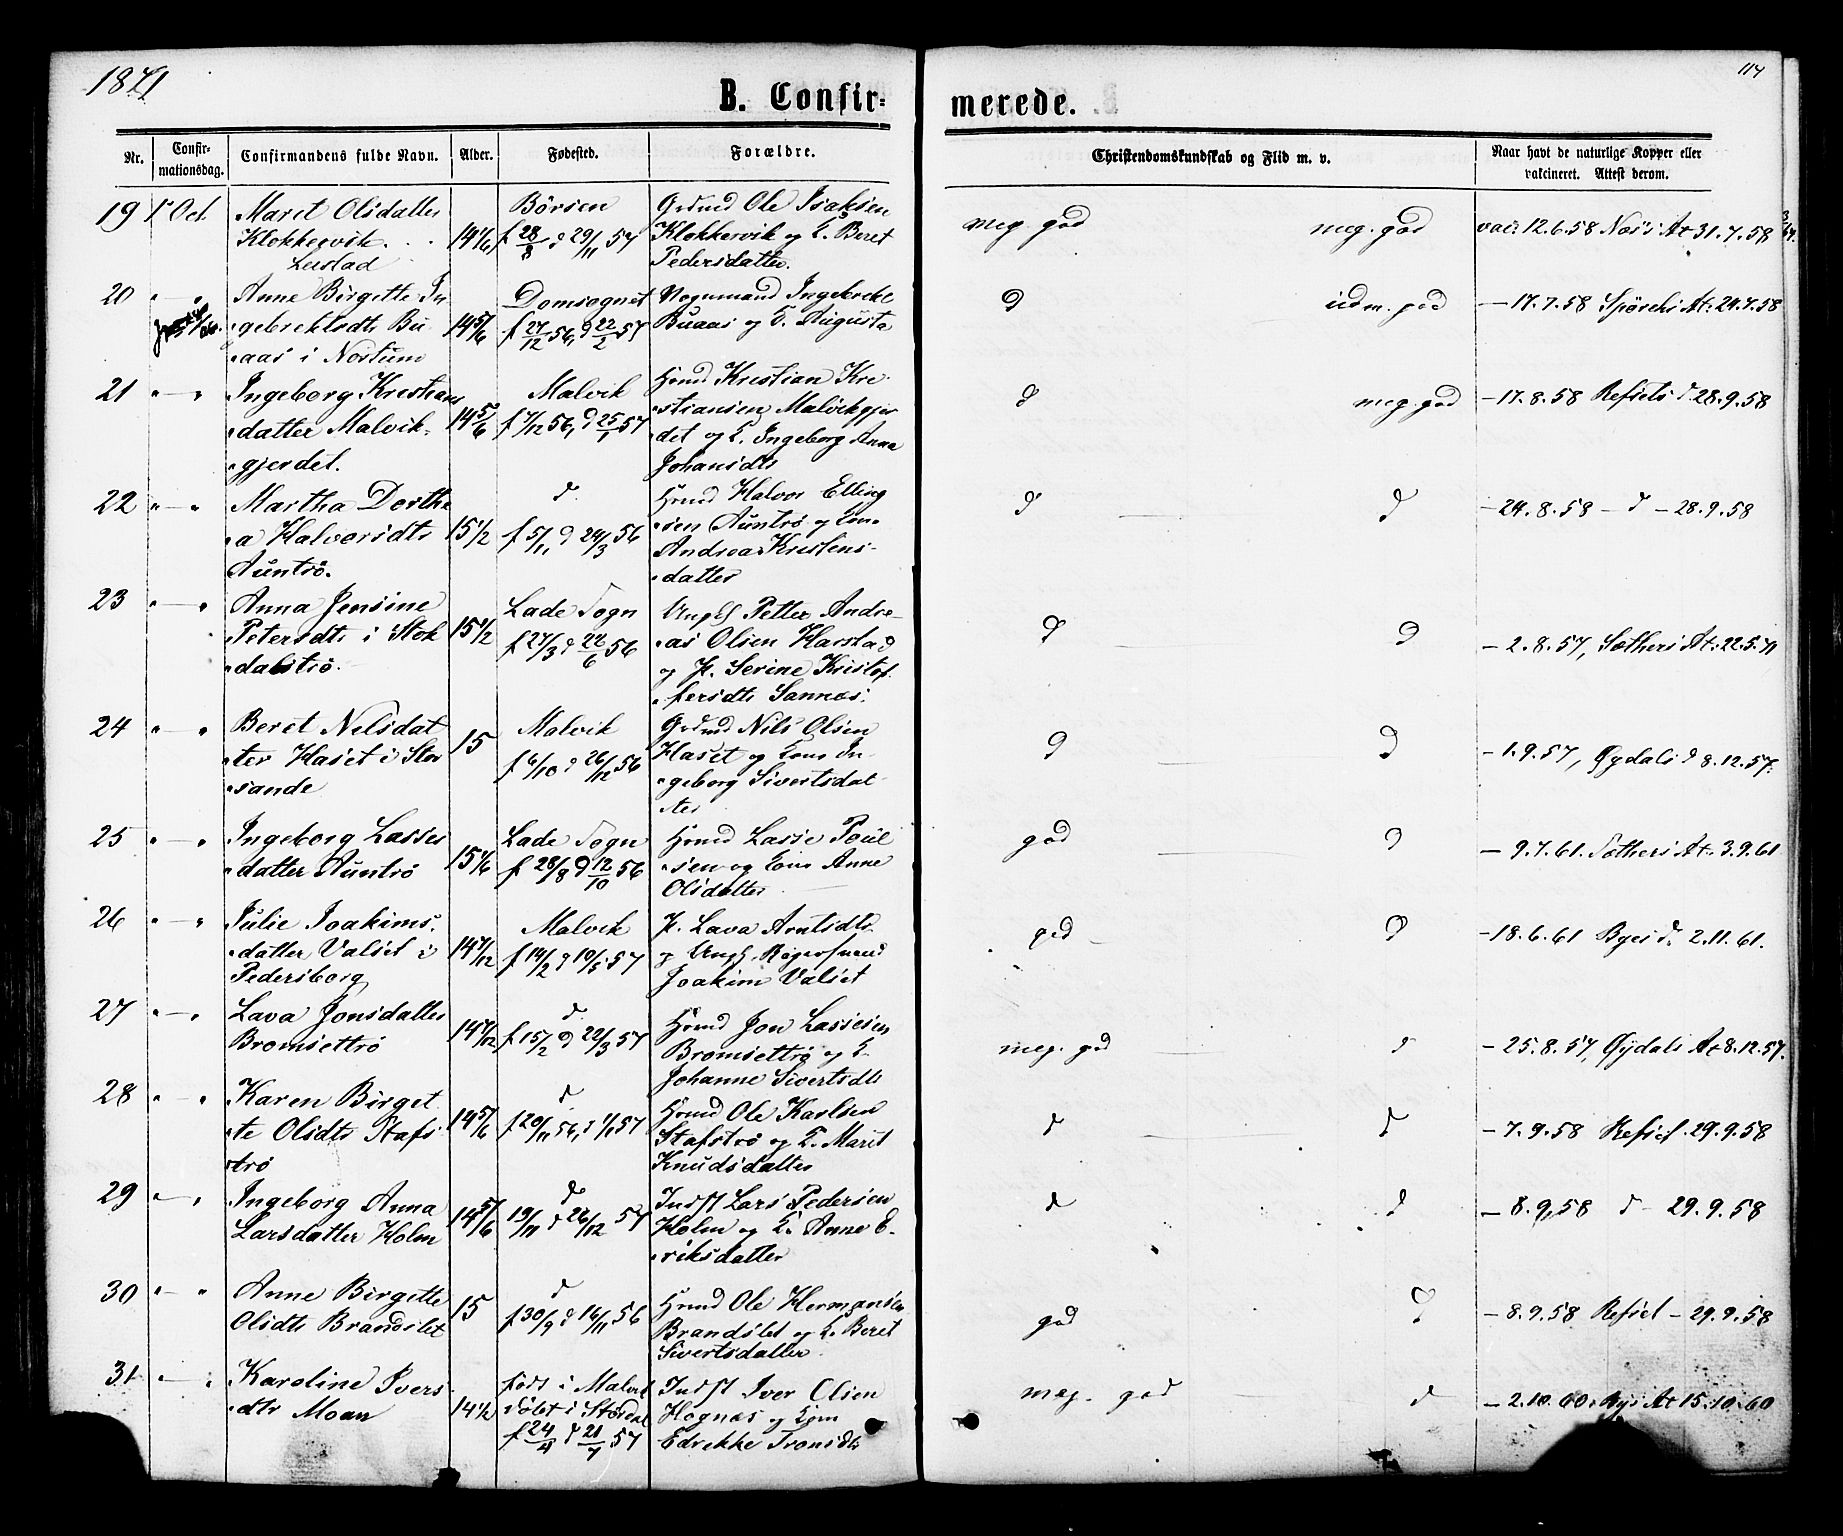 1871
114
B. Confir-
merede.
Nr.
Confir-
mationsdag.
Confirmandens fulde Navn.
Alder.
Fødested.
Forældre.
Christendomskundskab og Flid m. v.
Naar havt de naturlige Kopper eller
vakcineret. Attest derom.
19 1 Oct. Maret Olsdatter
Klokkervik
Leistad
14 1/6
Børsen
f 28/8 d 29/11 57
Gdmd Ole Isaksen
Klokkervik og E. Beret
Pedersdatter.
meg. god
meg. god
vac. 12.6.58 Næss At 31.7.58
20 " — " Anne Birgitte In
gebrektsdtr Bu
aas i Nostum
14 5/6
Domsognet
f 27/12 56, d 22/2 57
Vognmand Ingebrekt
Buaas og E. Augusta
d
udm. god
— 17.7.58 Spørcks At. 29.7.58
21 " — " Ingeborg Kristians
datter Malvik-
gjerdet.
14 5/6
Malvik
f 7/12 56, d 25/1 57
Hmd Kristian Kri-
stiansen Malvikgjer
det og E. Ingeborg Anna
Johansdtr
d
meg. god
— 17.8.58 Refsets d 28.9.58
22 " — " Martha Dorthe
a Halvorsdtr
Auntrø.
15 1/2
d
f 5/11 d 24/3 56
Hmd Halvor Elling
sen Auntrø og Kone
Andrea Kristens-
datter
d
d
— 24.8.58 — d — 28.9.58
23 " — " Anna Jensine
Petersdtr i Stok
dalstrø.
15 1/2
Lade Sogn
f 27/3 d 22/6 56
Ungk Petter Andre-
as Olsen Harstad
og P. Serine Kristof-
fersdtr Sannæs.
d
d
— 2.8.57, Sæthers At. 22.5.71
24 " — " Beret Nilsdat
ter Haset i Stor
sande
15
Malvik
f 6/10 d 26/12 56
Gdmd Nils Olsen
Haset og Kone In-
geborg Sivertsdat-
ter
d
d
— 1.9.57, Øydals d 8.12.57.
25 " — " Ingeborg Lasses
datter Auntrø
15 1/6
Lade Sogn
f 28/8 d 12/10 56
Hmd Lasse Poul
sen og Kone Anne
Olsdatter
god
d
— 9.7.61. Sæthers At. 3.9.61
26 " — " Julie Joakims.
datter Valset i
Pedersborg
14 7/12
Malvik
f 14/2 d 10/5 57
P. Lava Arntsdtr.
og Ungk.
Joakim Valset
god
d
— 18.6.61 Byes d. 2.11.61.
27 " — " Lava Jonsdatter
Bromsettrø
14 7/12
d
f 15/2 d 22/3 57
Hmd Jon Lassesen
Bromsettrø og E.
Johanne Sivertsdtr
meg. god
d
— 25.8.57, Øydals At 8.12.57.
28 " — " Karen Birget
te Olsdtr Stafs
trø
14 5/6
d
f 20/11 56, d 1/1 57
Hmd Ole Karlsen
Stafstrø og E. Marit
Knudsdatter
d
d
— 7.9.58 Refset 29.9.58
29 " — " Ingeborg Anna
Larsdatter Holm
14 5/6
d
19/11 d 26/12 57
Indst Lars Pedersen
Holm og E. Anne E-
riksdatter
d
d
— 8.9.58 d — 29.9.58
30 " — " Anne Birgitte
Olsdtr Brandslet
15
d
f 30/9 d 16/11 56
Hmd Ole Hermansen
Brandslet og E. Beret
Sivertsdatter
god
d
— 8.9.58 Refset — 29.9.58
31 " — " Karoline Ivers
dtr Moan
14 1/2
født i Malvik
døbt i Størdal
f 24/4 d 21/7 57
Indst Iver Olsen
Hognæs og Kone
Edrekke Tronsdtr
meg. god
d
— 2.10.60, Byes At 15.10.60